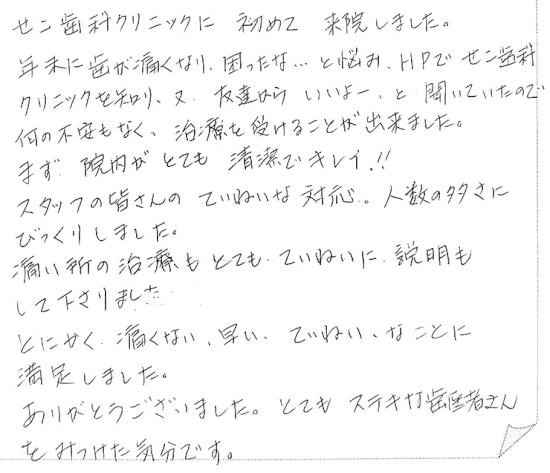 セン歯科クリニックに 初めて 来院しました。
年末に歯が痛くなり、困ったな…と悩み、HPでセン歯科
クリニックを知り、又、友達から いいよー、と 聞いていたので
何の不安もなく、治療を受けることが出来ました。
まず 院内が とても 清潔でキレイ!!
スタッフの皆さんの ていねいな 対応。人数の多さに
びっくりしました。
痛い所の治療も とても、ていねいに、説明も
して下さりました
とにかく、痛くない、早い、ていねい、なことに
満足しました。
ありがとうございました。とても ステキな歯医者さん
をみつけた気分です。